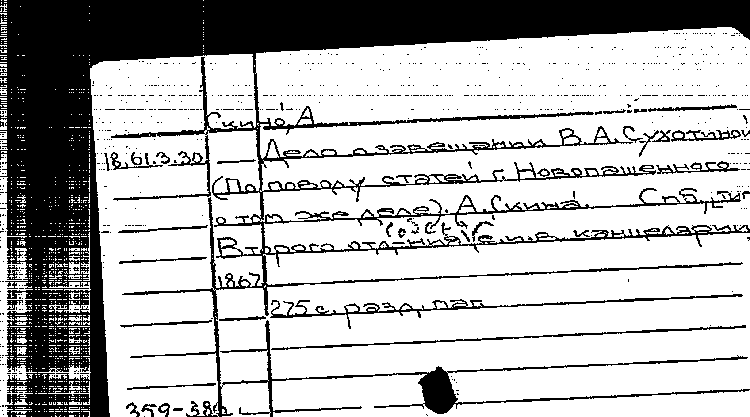 Скино, А
18.61.3.30 Дело о завещании В.А. Сухотиной
(По поводу статей г. Новопашенного
о том же деле). А. Скина. Спб., тип.
Второго отд-ния с.е.и.в. канцелярии,
1867
275 с. разд. паг
359-38